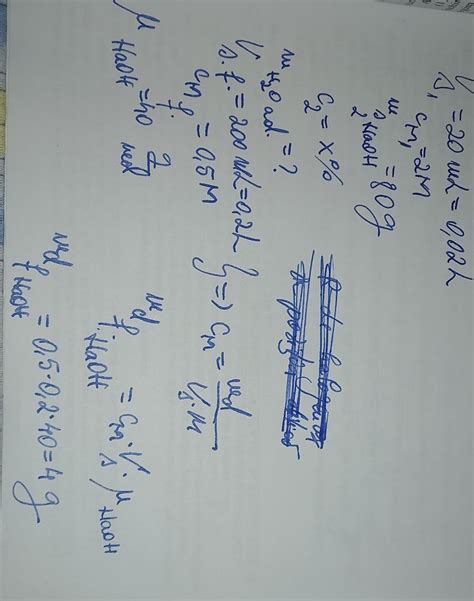 V_s₁ = 20 mL = 0,02 L
C_M₁ = 2M
m_s₂ NaOH = 80g
C₂ = x%
m_H₂O ad. = ?
V_s.f. = 200 mL = 0,2 L
C_M f. = 0,5 M
μ_NaOH = 40 g/mol
} => C_M = md/V_s·M
md_f. NaOH = C_M · V_s · μ_NaOH
md_f NaOH = 0,5·0,2·40 = 4 g